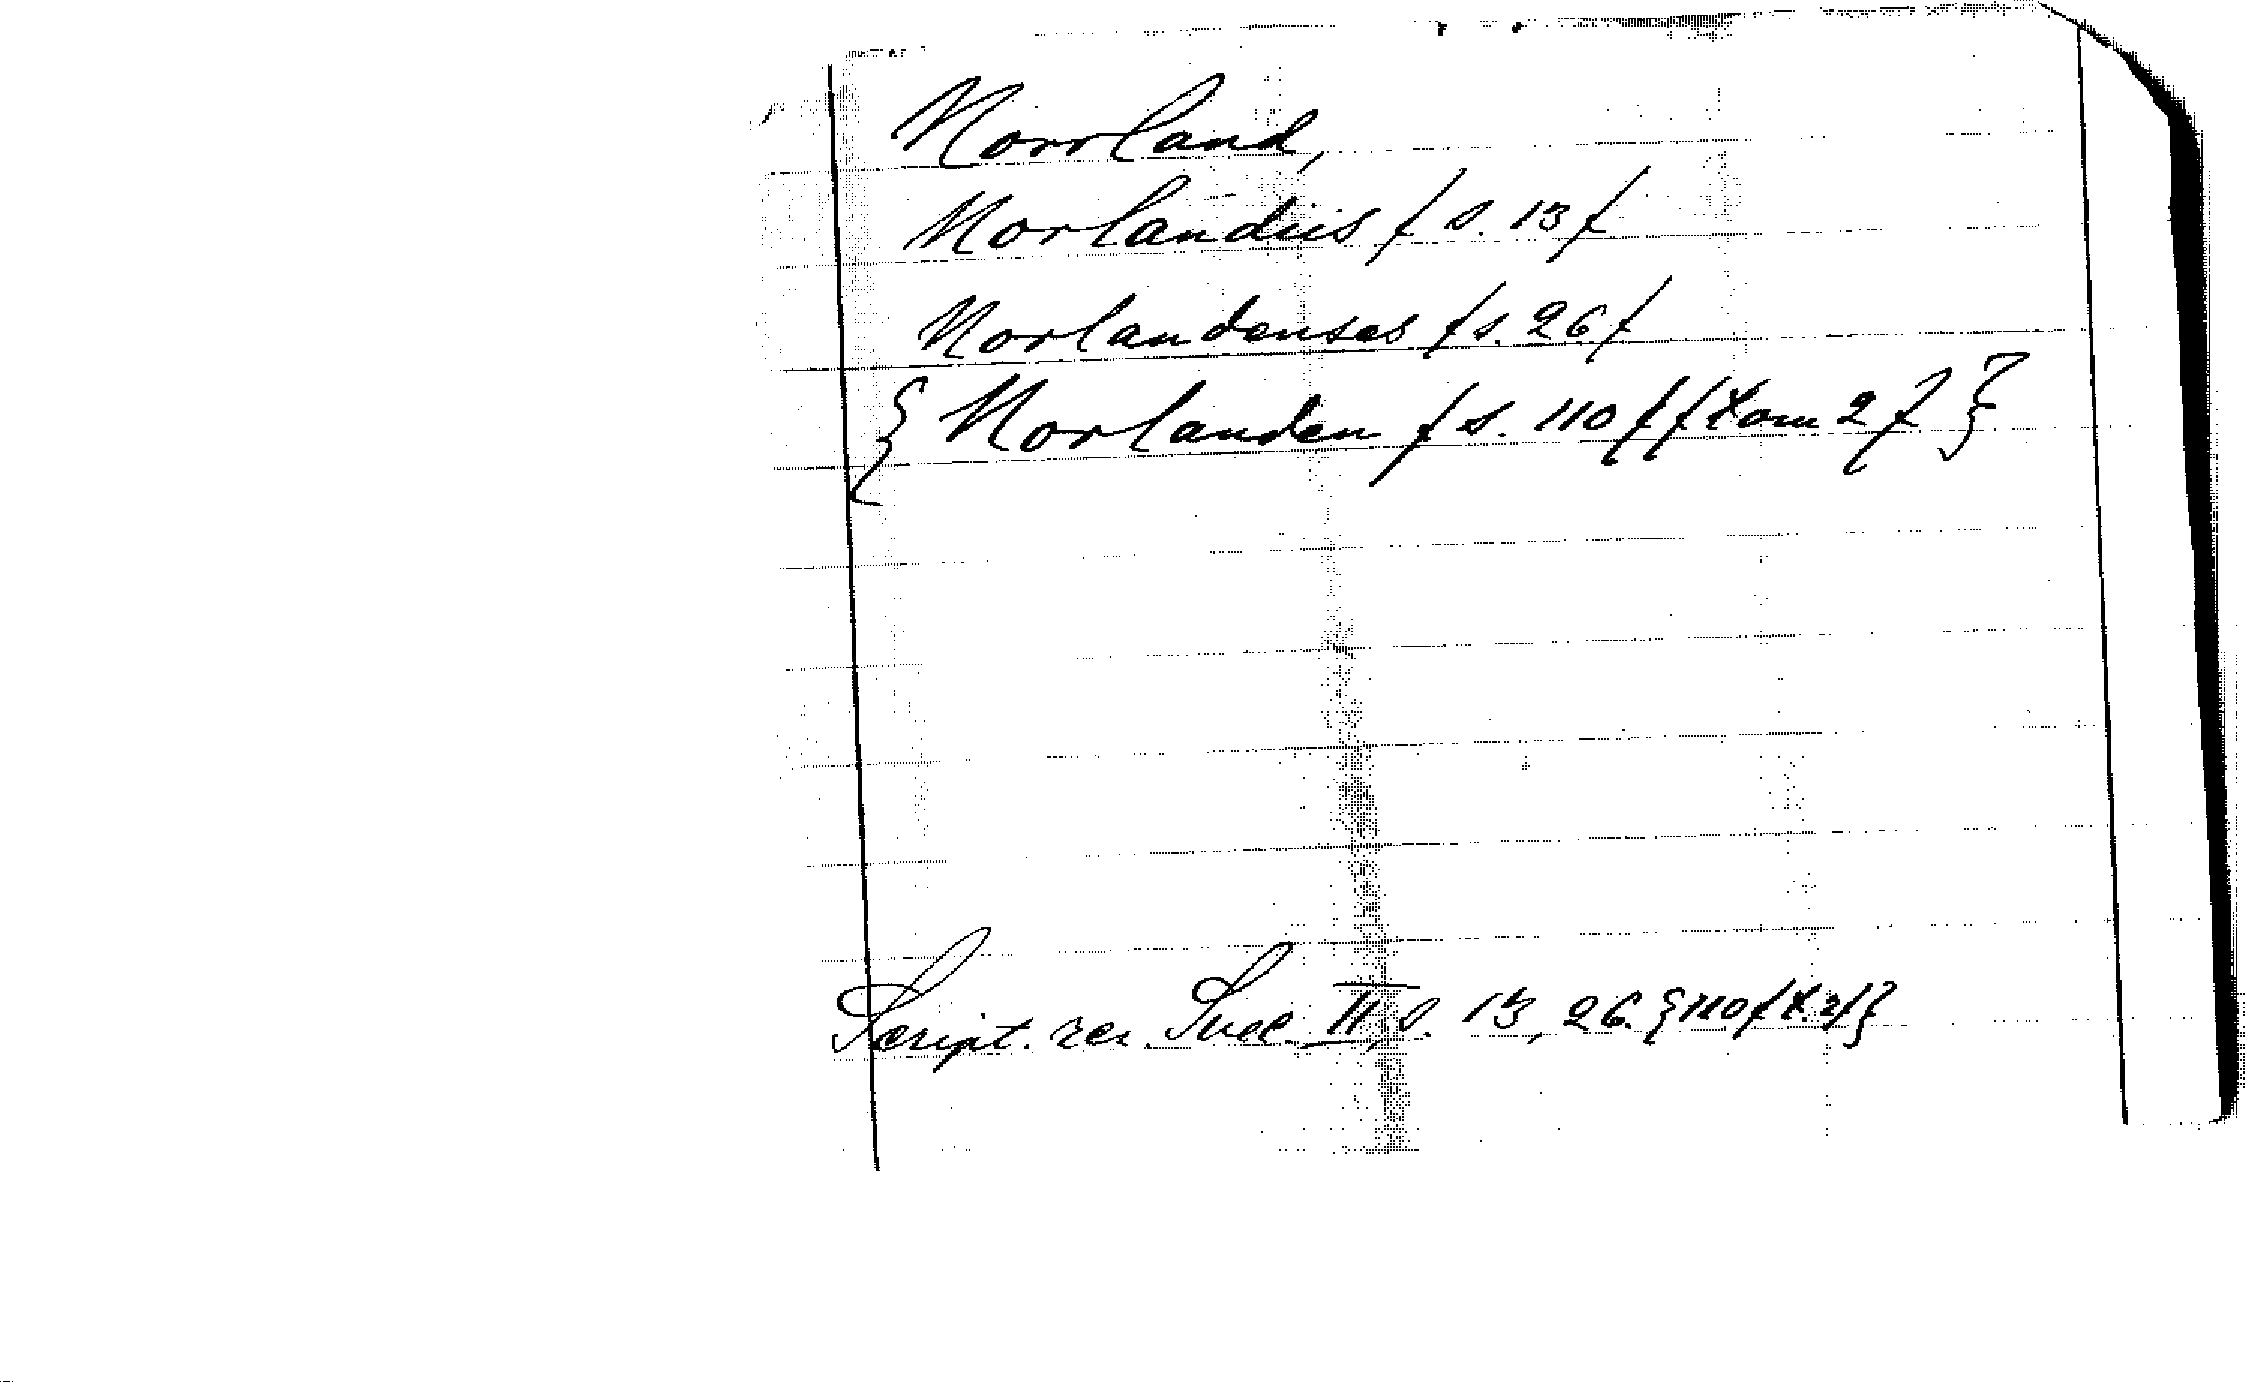 Norrland,
Norlandiis /s. 13/
Norlandenses /s. 26/
{Norlanden /s. 110/ /t om 2/}
Script. rer. Svec. II, s. 13, 26. {110/t. 2/}